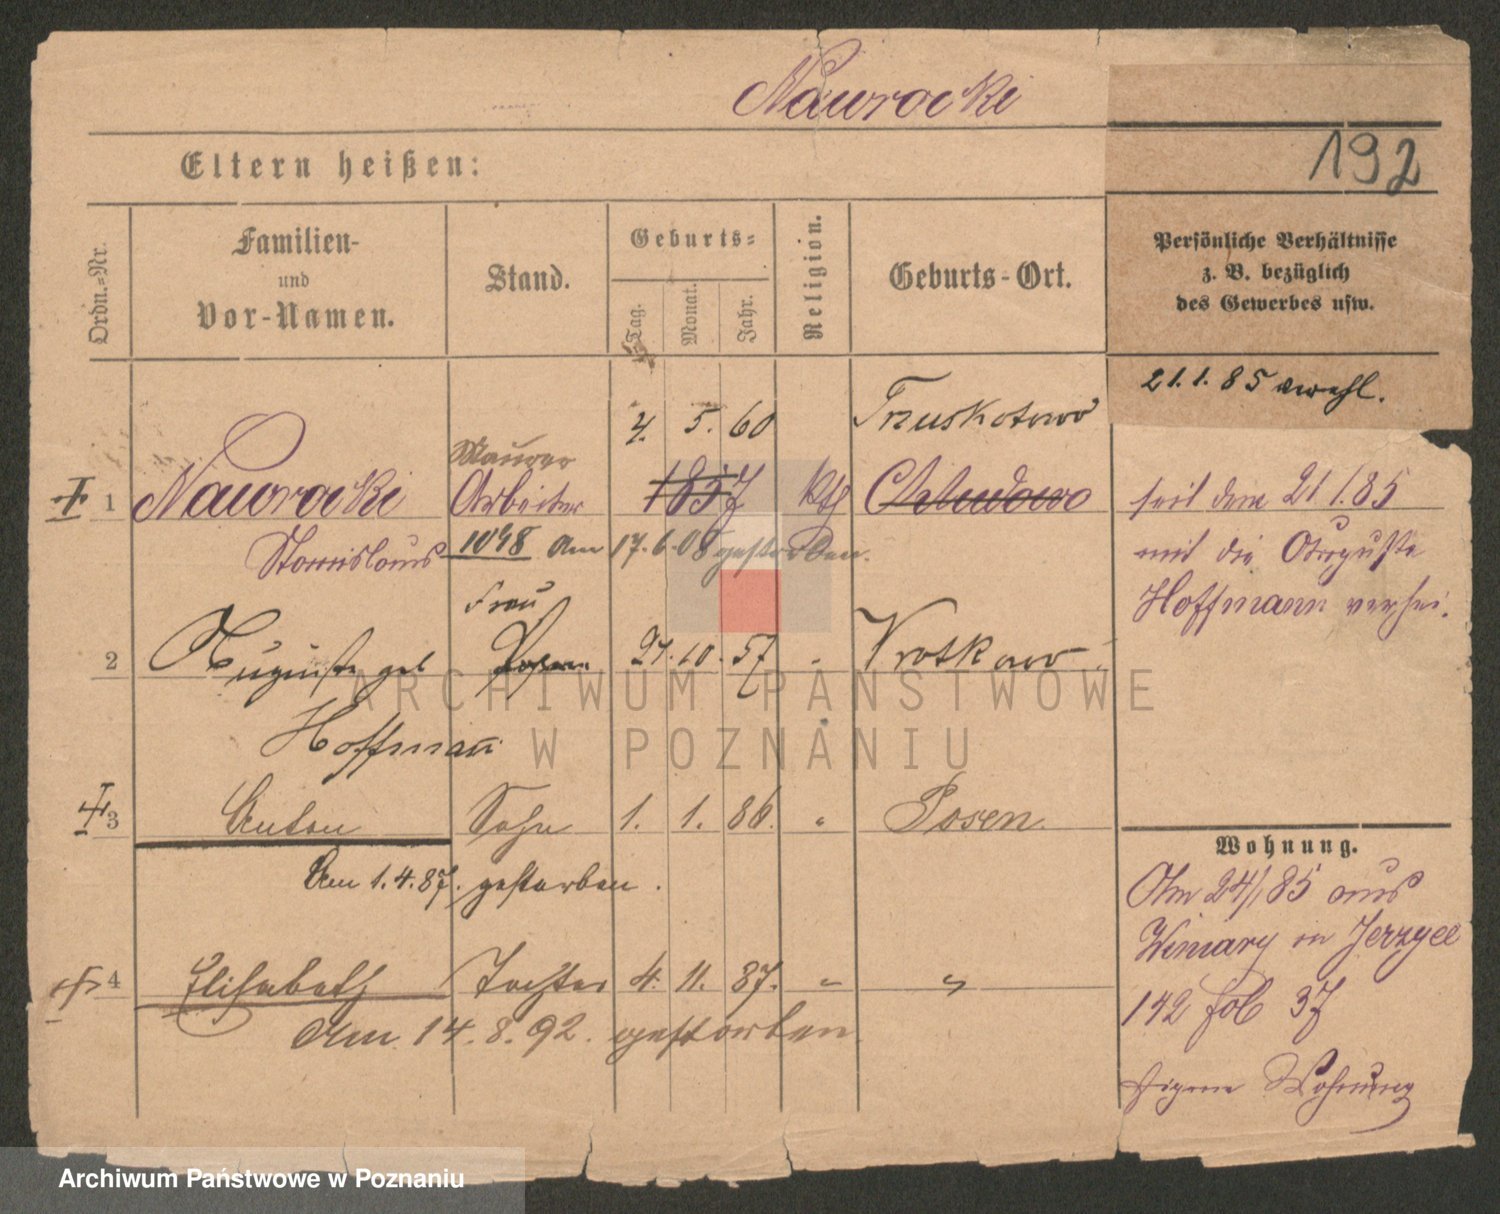 Nawrocki
Eltern heißen:
192
Ordn.=Nr.
Familien-
und
Vor-Namen.
Stand.
Geburts=
Tag.
Monat.
Jahr.
Religion.
Geburts-Ort.
Persönliche Verhältnisse
z. B. bezüglich
des Gewerbes usw.
21.1.85 ewehl.
4. 5. 60 Truskotowo
Maurer
1 Nawrocki Arbeiter 1857 kth
Stanislaus 1048 Am 17.6.08 gestorben.
seit dem 21 1.85
mit die Auguste
Hoffmann verhei.
Frau
2 Auguste geb 27. 10. 57 "
Hoffmann
3 Anton Sohn 1. 1. 86. " Posen.
Am 1.4.87. gestorben.
4 Elisabeth Tochter 4. 11. 87. " "
Am 14.8.92. gestorben.
Wohnung.
Am 24/1 85 aus
Winiary in Jerzyce
142 fol 37
Eigene Wohnung
ARCHIWUM PAŃSTWOWE
W POZNANIU
Archiwum Państwowe w Poznaniu